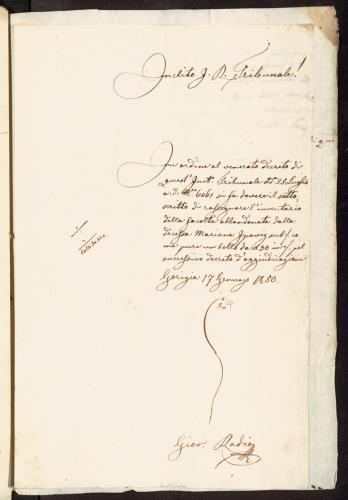 Inclito I. R. Tribunale!
In ordine al venerato decreto di
quest' Incl. Tribunale dd. 25 Luglio
a. d. N.° 6061 si fa dovere il sotto
scritto di rassegnare l'inventario
della facoltà abbandonata dalla
decessa Mariana sub /. co
me pure un bollo da x 30 in //. pel
successivo decreto d'aggiudicazione
Gorizia 17 Gennajo 1850.
Giov. Radio
bollo da 30 x